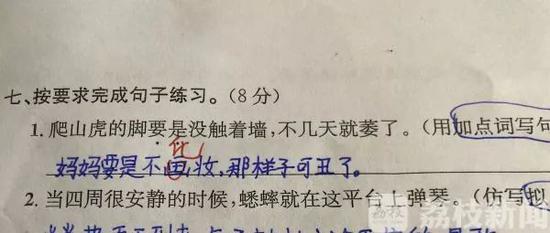 荔枝新闻
七、按要求完成句子练习。(8分)
1. 爬山虎的脚要是没触着墙,不几天就萎了。(用加点词写句
化
妈妈要是不画妆,那样子可丑了。
2. 当四周很安静的时候,蟋蟀就在这平台上弹琴。(仿写拟
荔枝新闻